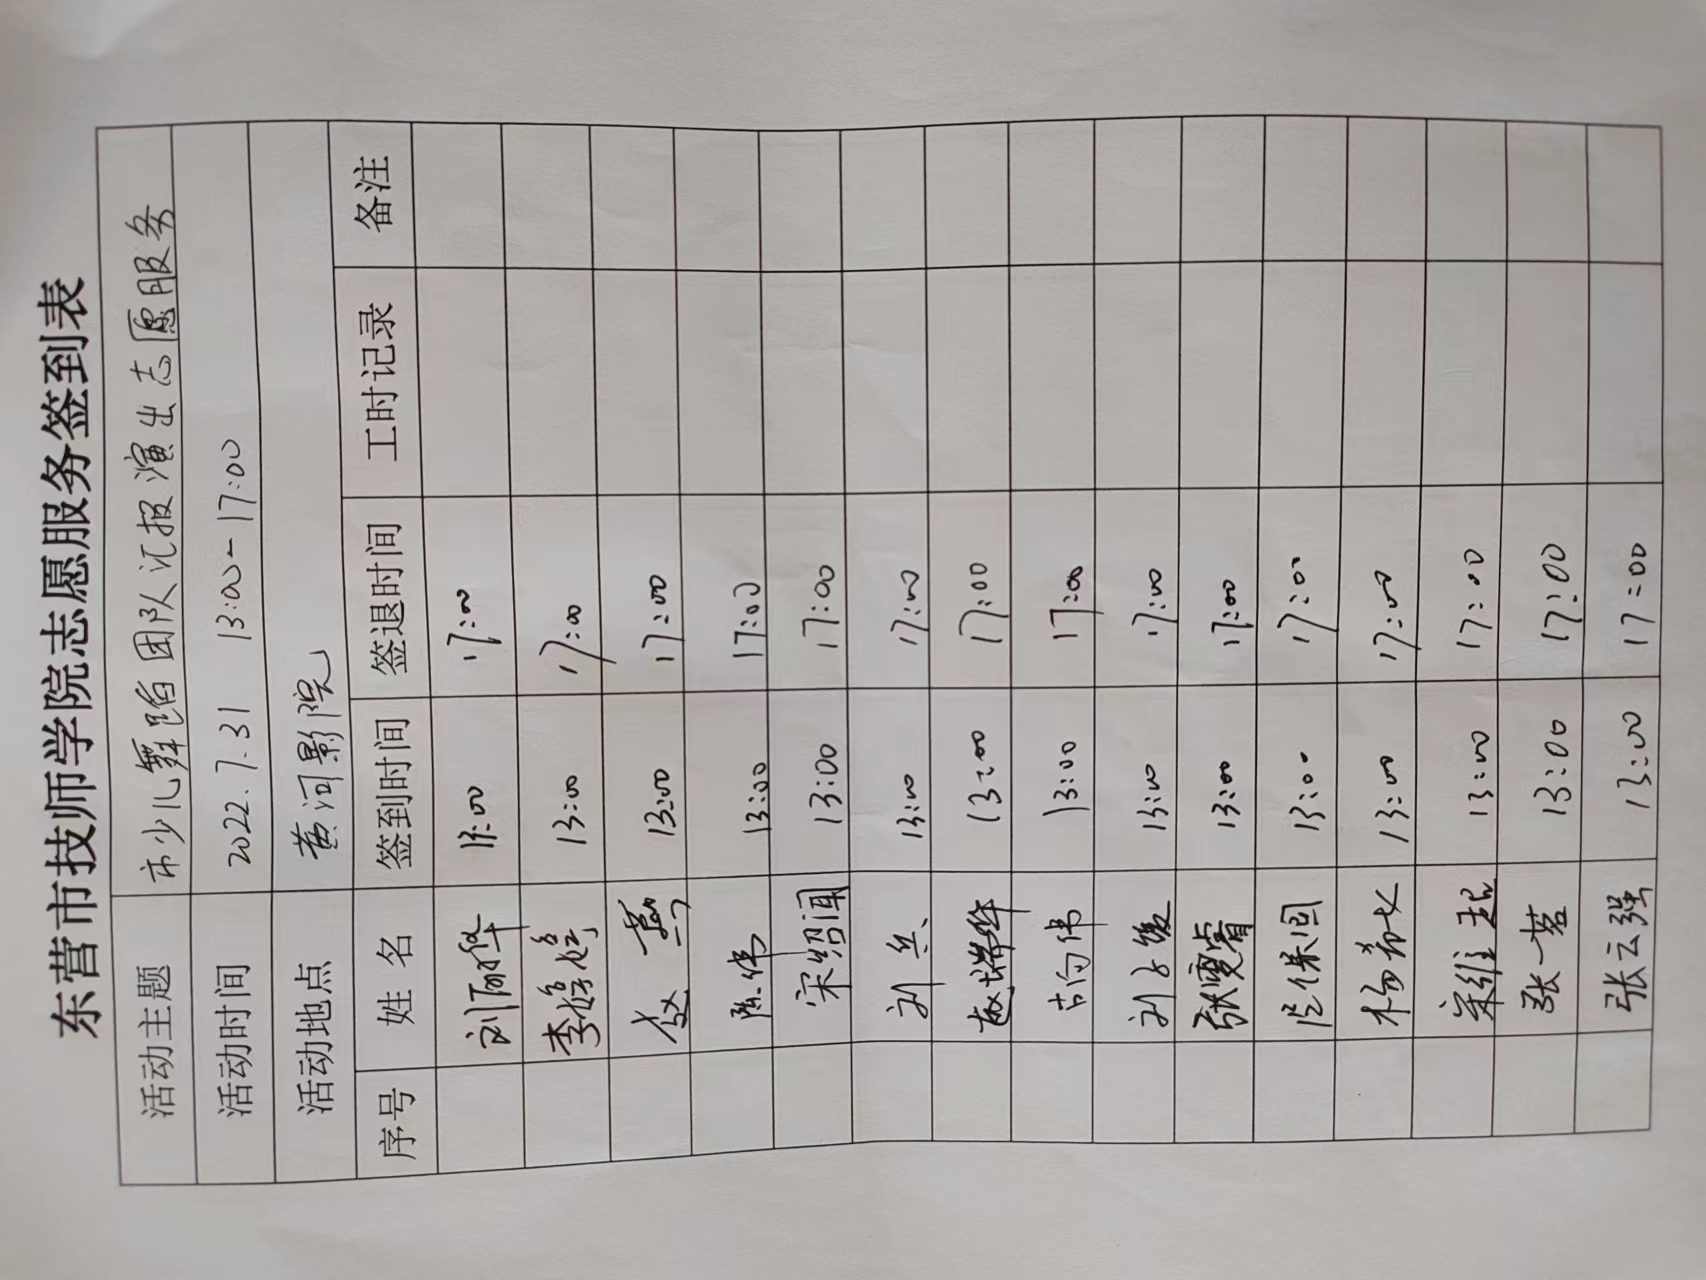 东营市技师学院志愿服务签到表
活动主题 市少儿舞蹈团队汇报演出志愿服务
活动时间 2022.7.31 13:00-17:00
活动地点 黄河影院
序号 姓名 签到时间 签退时间 工时记录 备注
刘丽华 13:00 17:00
李婷婷 13:00 17:00
13:00 17:00
陈伟 13:00 17:00
宋绍闻 13:00 17:00
刘兵 13:00 17:00
赵瑞华 13:00 17:00
苗向伟 13:00 17:00
13:00 17:00
张雯睿 13:00 17:00
13:00 17:00
杨希文 13:00 17:00
宋维超 13:00 17:00
张一茗 13:00 17:00
张云强 13:00 17:00